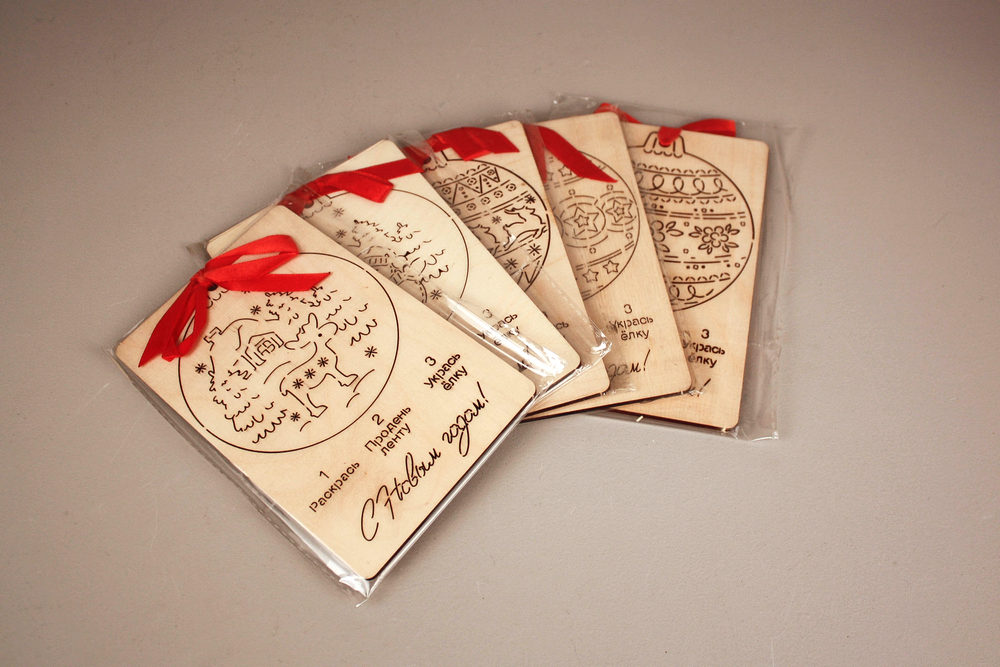 1
Раскрась
2
Продень
ленту
3
Укрась
ёлку
С Новым годом!
3
3
Укрась
ёлку
годом!
3
Укрась
ёлку